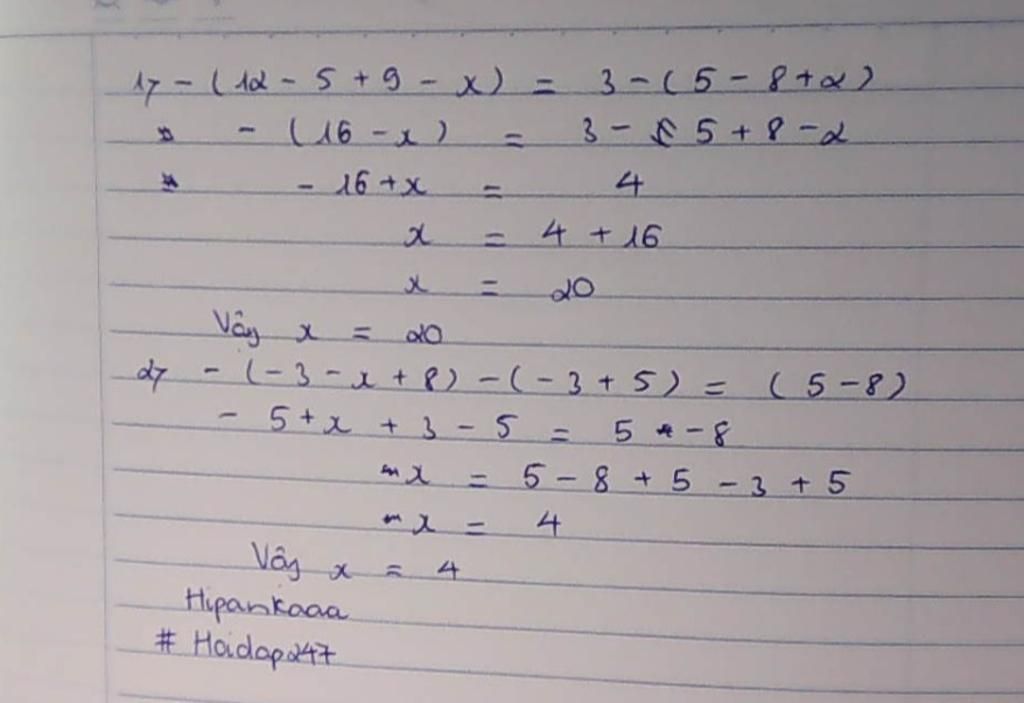 1, - (12 - 5 + 9 - x) = 3 - (5 - 8 + 2)
- (16 - x) = 3 - 5 + 8 - 2
- 16 + x = 4
x = 4 + 16
x = 20
Vậy x = 20
2, - (-3 - x + 8) - (-3 + 5) = (5 - 8)
- 5 + x + 3 - 5 = 5 - 8
x = 5 - 8 + 5 - 3 + 5
x = 4
Vậy x = 4
Hipankaaa
# Hoidap247